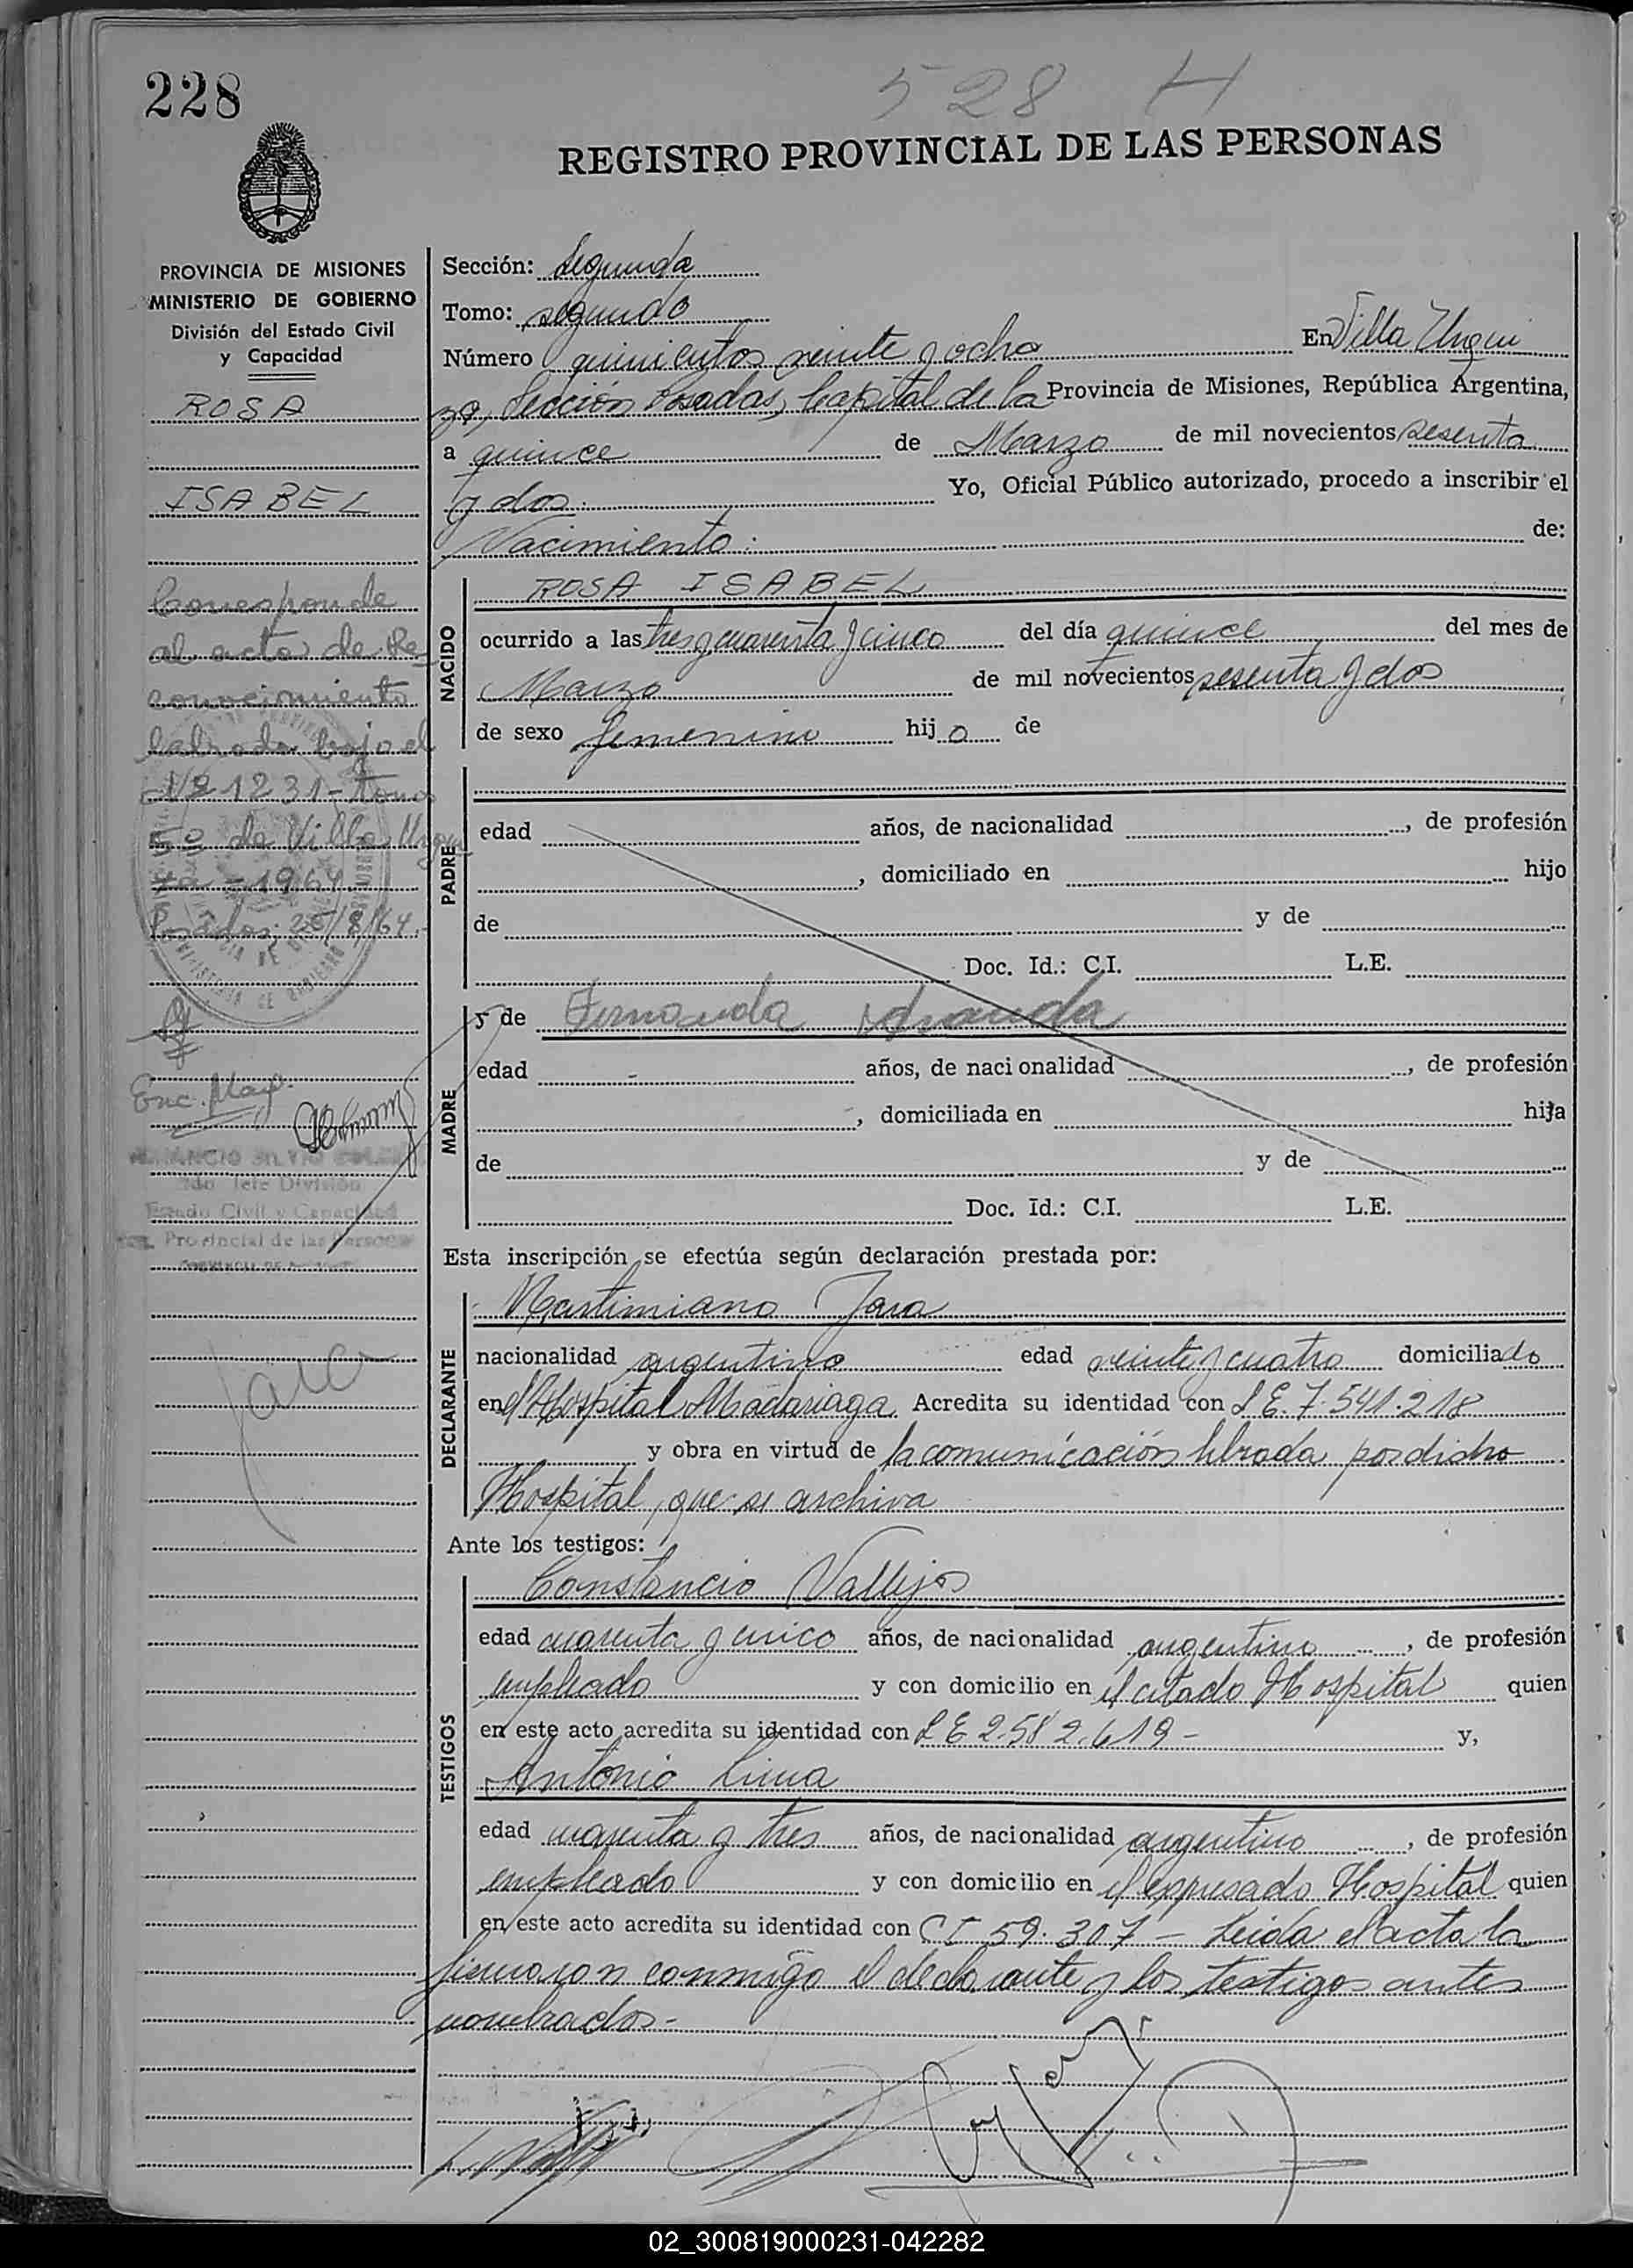 228
528 H
REGISTRO PROVINCIAL DE LAS PERSONAS
PROVINCIA DE MISIONES
MINISTERIO DE GOBIERNO
División del Estado Civil
y Capacidad
ROSA
ISABEL
Corresponde
al acto de Re
conocimiento
labrado bajo el
Nº 1231 - tomo
5º de Villa Urqui
za - 1964
Posadas; 25/8/64.-
Enc. Mag.
Estado Civil y Capacidad
Provincial de las Personas
Jara
Sección: Segunda
Tomo: segundo
Número quinientos veinte y ocho En Villa Urqui
za, Sección Posadas, Capital de la Provincia de Misiones, República Argentina,
a quince de Marzo de mil novecientos sesenta
y dos. Yo, Oficial Público autorizado, procedo a inscribir el
Nacimiento: de:
NACIDO
ROSA ISABEL
ocurrido a las tres y cuarenta y cinco del día quince del mes de
Marzo de mil novecientos sesenta y dos
de sexo femenino hija de
PADRE
edad años, de nacionalidad , de profesión
, domiciliado en hijo
de y de
Doc. Id.: C.I. L.E.
MADRE
y de Fernanda Aranda
edad años, de nacionalidad , de profesión
, domiciliada en hija
de y de
Doc. Id.: C.I. L.E.
Esta inscripción se efectúa según declaración prestada por:
DECLARANTE
Martimiano Jara
nacionalidad argentino edad veinte y cuatro domiciliado
en el Hospital Madariaga Acredita su identidad con L E. 7.541.218
y obra en virtud de la comunicación librada por dicho
Hospital, que se archiva
Ante los testigos:
TESTIGOS
Constancio Vallejos
edad cuarenta y cinco años, de nacionalidad argentino , de profesión
empleado y con domicilio en el citado Hospital quien
en este acto acredita su identidad con L E 2.582.619 - y,
Antonio Lima
edad cuarenta y tres años, de nacionalidad argentino , de profesión
empleado y con domicilio en el expresado Hospital quien
en este acto acredita su identidad con CI 59.307 - Leida el acta la
firmaron conmigo el declarante y los testigos antes
nombrados.-
02_300819000231-042282